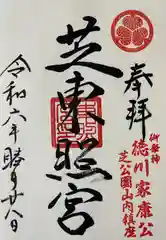 奉拝
御祭神
徳川家康公
芝公園山内鎮座
芝東照宮
令和六年勝月廿八日